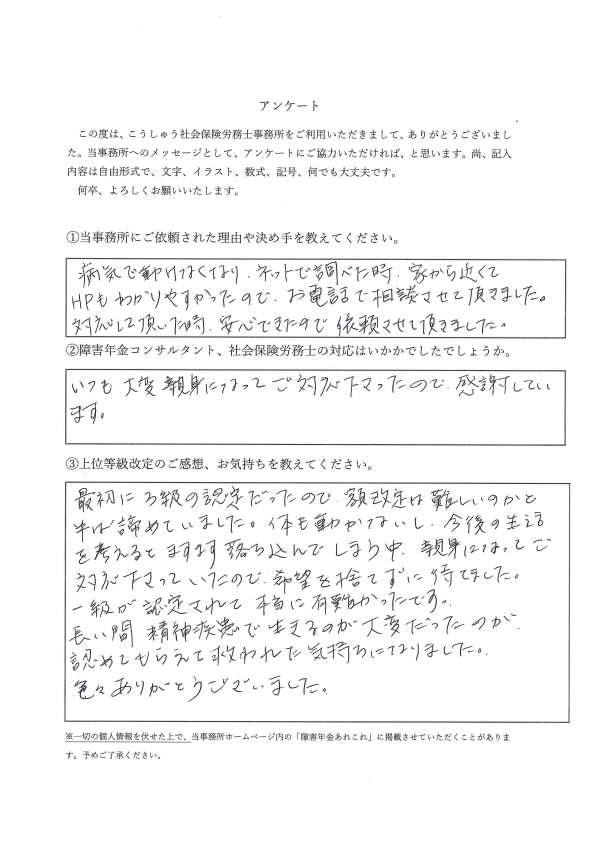 アンケート
この度は、こうしゅう社会保険労務士事務所をご利用いただきまして、ありがとうございまし
た。当事務所へのメッセージとして、アンケートにご協力いただければ、と思います。尚、記入
内容は自由形式で、文字、イラスト、数式、記号、何でも大丈夫です。
何卒、よろしくお願いいたします。
①当事務所にご依頼された理由や決め手を教えてください。
病気で動けなくなり、ネットで調べた時、家から近くて
HPもわかりやすかったので、お電話で相談させて頂きました。
対応して頂いた時、安心できたので依頼させて頂きました。
②障害年金コンサルタント、社会保険労務士の対応はいかかでしたでしょうか。
いつも大変親身になってご対応下さったので、感謝してい
ます。
③上位等級改定のご感想、お気持ちを教えてください。
最初に3級の認定だったので、額改定は難しいのかと
半ば諦めていました。体も動かないし、今後の生活
を考えるとますます落ち込んでしまう中、親身になってご
対応下さっていたので、希望を捨てずに待てました。
一級が認定されて本当に有難かったです。
長い間精神疾患で生きるのが大変だったのが、
認めてもらえて救われた気持ちになりました。
色々ありがとうございました。
※一切の個人情報を伏せた上で、当事務所ホームページ内の「障害年金あれこれ」に掲載させていただくことがありま
す。予めご了承ください。